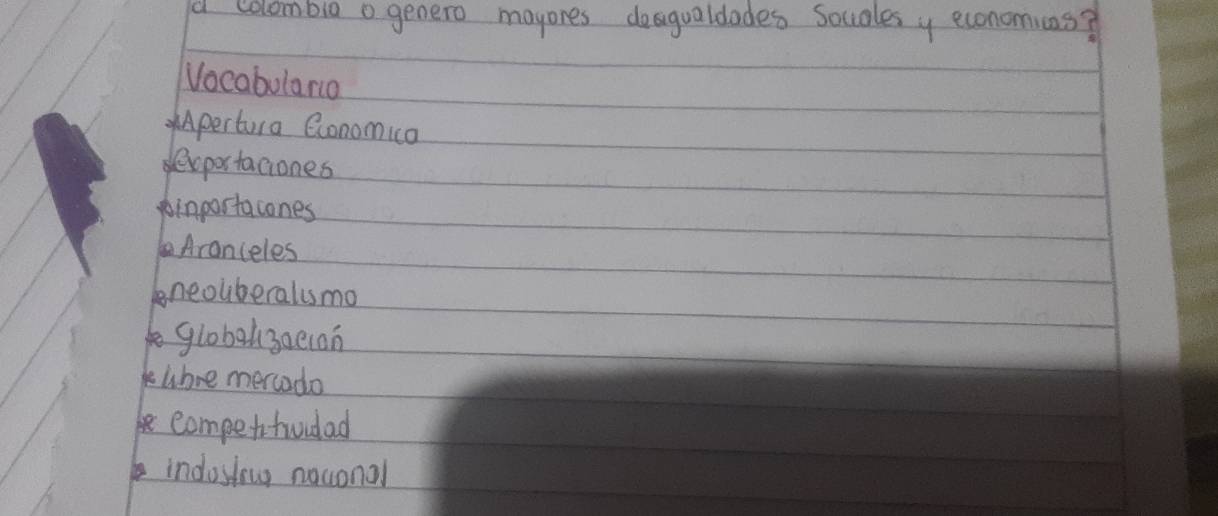 a colombia o genero mayores desigualdades Sociales y economicas?
Vocabulario
Apertura Economica
exportaciones
inportacones
Aranceles
neoliberalismo
globalización
libre mercado
competitividad
industria nacional